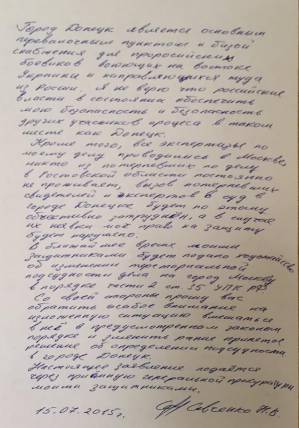 Город Донецк является основным
перевалочным пунктом и базой
снабжения для пророссийских
боевиков воюющих на востоке
Украины и направляющихся туда
из России. Я не верю что российские
власти в состоянии обеспечить
мою безопасность и безопасность
других участников процесса в таком
месте как Донецк.
Кроме того, все экспертизы по
моему делу проводились в Москве,
никто из потерпевших по делу
в Ростовской области постоянно
не проживает, вызов потерпевших
свидетелей и экспертов в суд в
городе Донецке будет по этому
объективно затруднён, а в случае
их неявки моё право на защиту
будет нарушено.
В ближайшее время моими
защитниками будет подано ходатайство
об изменении территориальной
подсудности дела на город Москву
в порядке части 2 ст. 35 УПК РФ.
Со своей стороны прошу вас
обратить особое внимание на
изложенную ситуацию вмешаться
в неё в предусмотренном законом
порядке и изменить ранее принятое
решение об определении подсудности
в городе Донецк.
Настоящее заявление подаётся
через приёмную генеральной прокуратуры
моими защитниками.
15.07.2015г. Савченко Н.В.